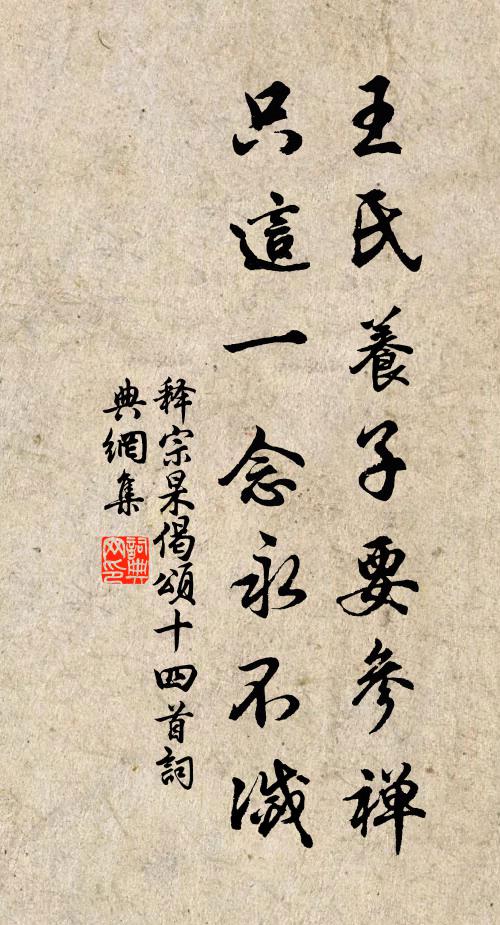 王氏養子要參禅
只這一念永不滅
释宗杲偈頌十四首詞
典網集
詞典
网印